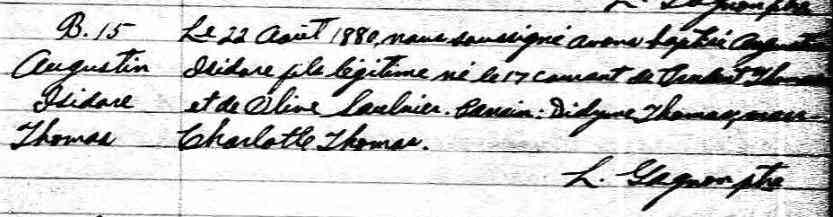 L. Gagnon ptre
B. 15 Le 22 Août 1880, nous soussigné avons baptisé Augustin
Augustin Isidore fils légitime né le 17 courant de Thomas
Isidore et de Olive Saulnier. Parrain: Didyme Thomas, marr.
Thomas Charlotte Thomas.
L. Gagnon ptre